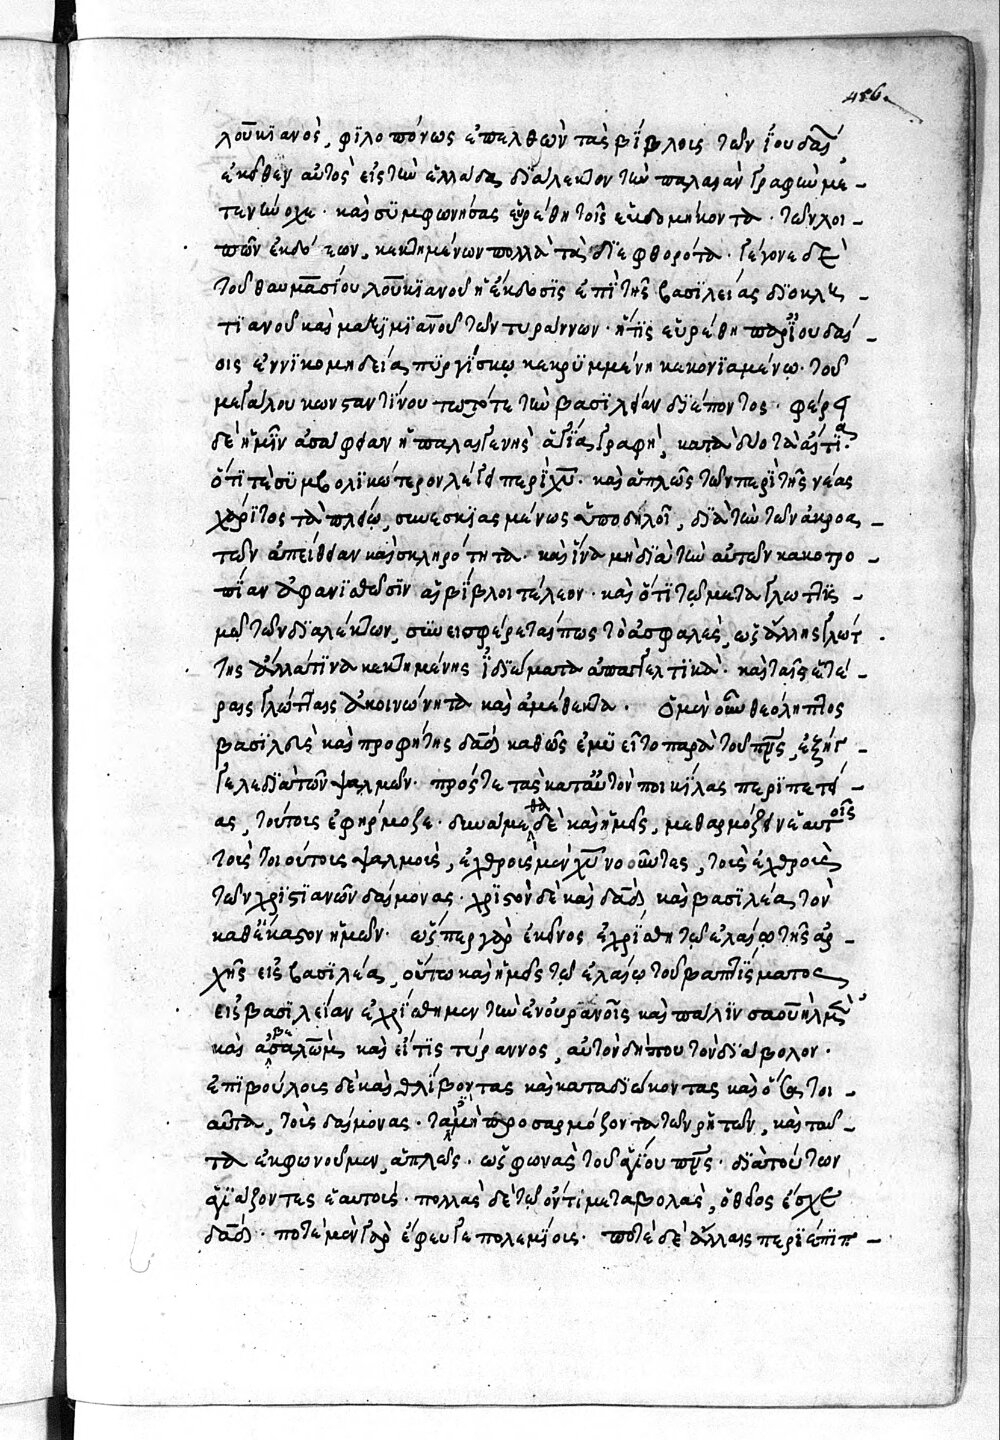 456
λουκϊανὸς, φϊλοπόνως ἐπελθὼν τὰς βΐβλοις τῶν ΐουδαί
ἐκεῖθεν αὐτὸς εἰς τὴν ἑλλάδα διάλεκτον τὴν παλαιὰν γραφὴν με-
τενήνοχε· καὶ συμφωνήσας εὑρέθη τοῖς ἑβδομήκοντα· τῶν λοι-
πῶν ἐκδόσεων, κεκτημένων πολλὰ τὰ διεφθορότα· γέγονε δὲ
τοῦ θαυμασίου λουκϊανοῦ ἡ ἔκδοσϊς ἐπὶ τῆς βασιλείας διοκλη-
τϊανοῦ καὶ μαξϊμϊανοῦ τῶν τυράννων· ἥτις εὑρέθη παρ' ΐουδαί-
οις ἐν νϊκομηδεία πυργΐσκω κεκρυμμένη κεκονϊαμένω· τοῦ
μεγάλου κωνσταντίνου τωτότε τὴν βασιλείαν διέποντος· φέρει
δέ ἡμῖν ἀσάφειαν ἡ παλαιγενὴς ἁγία γραφὴ, κατὰ δύο τὰ αἴτια·
ὅτι τὲ συμβολϊκώτερον λέγει περὶ χυ· καὶ ἁπλῶς τῶν περὶ τῆς νέας
χάριτος τὰ πλείω, συνεσκιασμένως ὑποδηλοῖ, διὰ τὴν τῶν ἀκροα-
τῶν ἀπείθειαν καὶ σκληρότητα· καὶ ἵνα μὴ διὰ τὴν αὐτῶν κακοτρο-
πΐαν ἀφανϊσθῶσϊν αἱ βΐβλοι τέλεον· καὶ ὅτι τῶ μεταγλωττϊσ-
μῶ τῶν διαλέκτων, συνεισφέρεταί πως τὸ ἀσαφὲς, ὡς ἄλλης γλώτ
της ἄλλα τϊνὰ κεκτημένης ΐδϊώματα ἀπαγγελτϊκὰ· καὶ ταῖς ἑτέ-
ραις γλώτταις ἀκοινώνητα καὶ ἀμέθεκτα. Ὁ μὲν οὖν θεόληπτος
βασϊλεὺς καὶ προφήτης δαδ καθὼς ἐμυεῖτο παρὰ τοῦ πνς, ἐξήγ-
γελε διὰ τῶν ψαλμῶν· πρός τε τὰς κατ' αὐτὸν ποικίλας περϊπετεί-
ας, τούτοις ἐφήρμοζε· δυνάμεθα δὲ καὶ ἡμεῖς, μεθαρμόζειν ἑαυτοῖς
τοὺς τοιούτοις ψαλμοὺς, ἐχθροὺς μὲν χυ νοοῦντες, τοὺς ἐχθροὺς
τῶν χρϊστιανῶν δαίμονας· χρϊστὸν δὲ καὶ δαδ καὶ βασιλέα, τὸν
καθ' ἕκαστον ἡμῶν· ὥσπερ γὰρ ἐκεῖνος ἐχρίσθη τῶ ἐλαίω τῆς ἀρ-
χῆς εἰς βασιλέα, οὕτω καὶ ἡμεῖς τῶ ἐλαίω τοῦ βαπτίσματος
εἰς βασϊλείαν ἐχρίσθημεν τὴν ἐν οὐρανοῖς καὶ πάλιν σαοὺλ μὲν
καὶ ἀβεσαλὼμ καὶ εἴ τις τύραννος, αὐτὸν δήπου τὸν διάβολον·
ἐπϊβούλοις δὲ καὶ θλίβοντας καὶ καταδϊώκοντας καὶ ὅσα τοι-
αῦτα, τοὺς δαίμονας· τὰ μὴ προσαρμόζοντα τῶν ρητῶν, καὶ ταῦ-
τα ἐκφωνοῦμεν, ἁπλῶς· ὡς φωνὰς τοῦ ἁγίου πνς· διὰ τούτων
ἁγϊάζοντες ἑαυτοὺς· πολλὰς δὲ τῶ ὄντι μεταβολὰς, ὁ θεῖος ἔσχε
δαδ· ποτὲ μὲν γὰρ ἔφευγε πολεμίοις· ποτὲ δὲ ἄλλαις περϊέπϊπ-